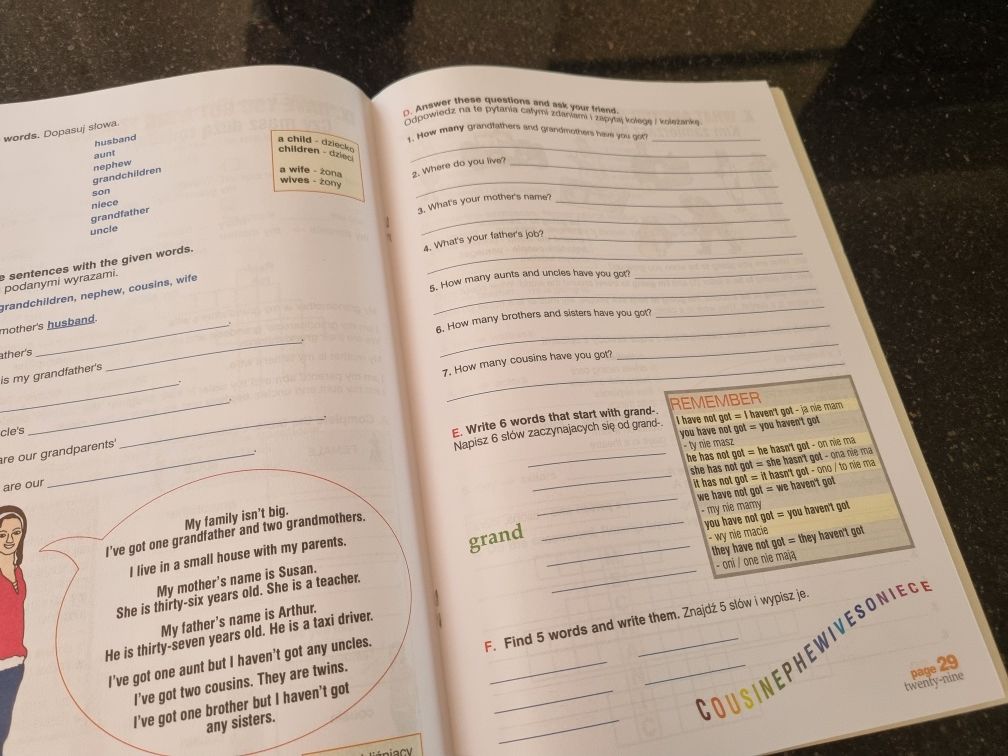 words. Dopasuj słowa.
husband
aunt
nephew
grandchildren
son
niece
grandfather
uncle
a child - dziecko
children - dzieci
a wife - żona
wives - żony
sentences with the given words.
podanymi wyrazami.
grandchildren, nephew, cousins, wife
mother's husband.
ather's
is my grandfather's
cle's
are our grandparents'
are our
My family isn't big.
I've got one grandfather and two grandmothers.
I live in a small house with my parents.
My mother's name is Susan.
She is thirty-six years old. She is a teacher.
My father's name is Arthur.
He is thirty-seven years old. He is a taxi driver.
I've got one aunt but I haven't got any uncles.
I've got two cousins. They are twins.
I've got one brother but I haven't got
any sisters.
D. Answer these questions and ask your friend.
Odpowiedz na te pytania całymi zdaniami i zapytaj kolegę / koleżankę.
1. How many grandfathers and grandmothers have you got?
2. Where do you live?
3. What's your mother's name?
4. What's your father's job?
5. How many aunts and uncles have you got?
6. How many brothers and sisters have you got?
7. How many cousins have you got?
E. Write 6 words that start with grand-.
Napisz 6 słów zaczynajacych się od grand-.
grand
REMEMBER
I have not got = I haven't got - ja nie mam
you have not got = you haven't got
- ty nie masz
he has not got = he hasn't got - on nie ma
she has not got = she hasn't got - ona nie ma
it has not got = it hasn't got - ono / to nie ma
we have not got = we haven't got
- my nie mamy
you have not got = you haven't got
- wy nie macie
they have not got = they haven't got
- oni / one nie mają
F. Find 5 words and write them. Znajdź 5 słów i wypisz je.
COUSINEPHEWIVESONIECE
page 29
twenty-nine